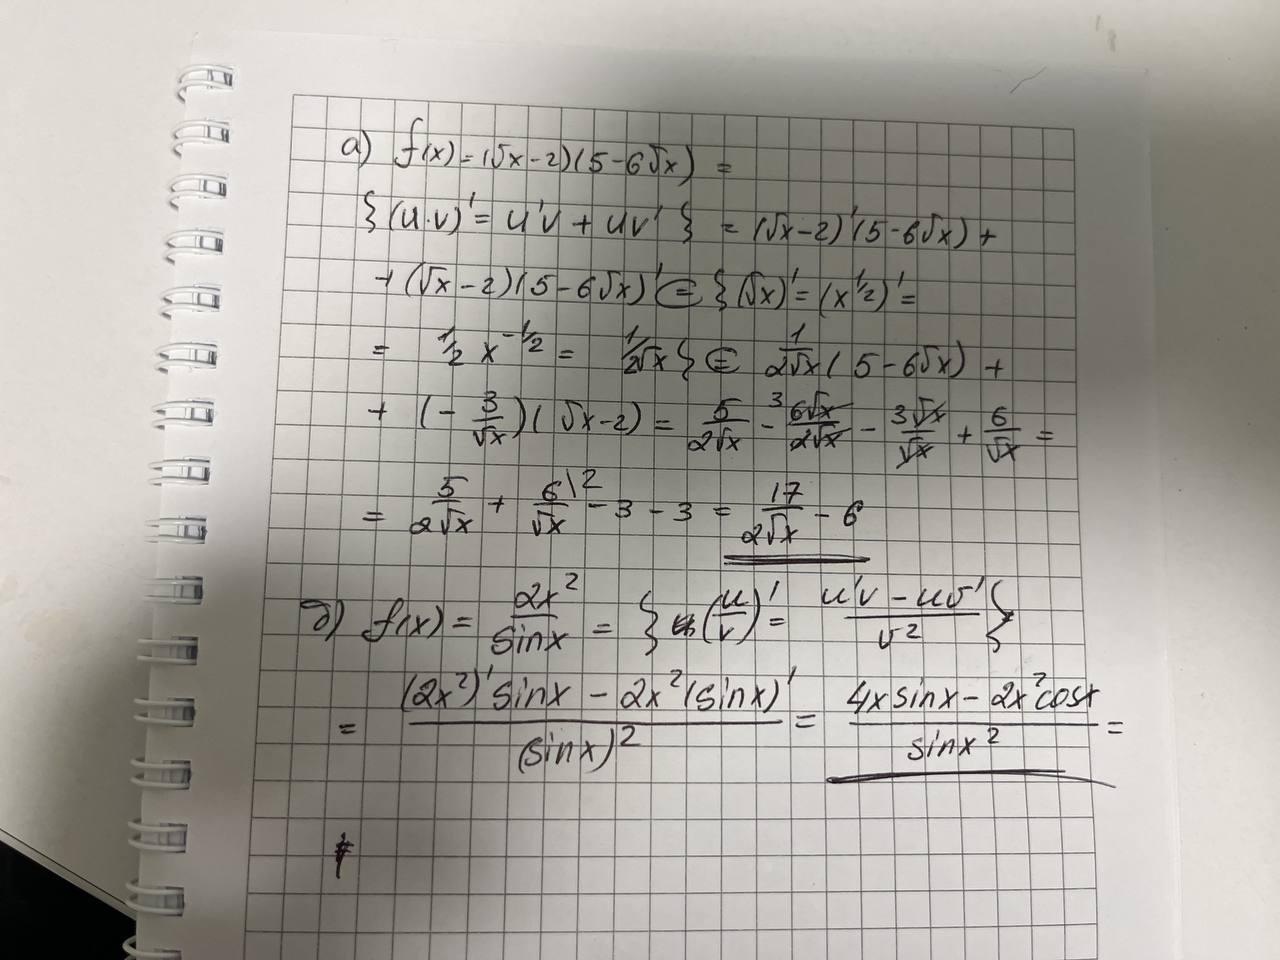 а) f(x) = (√x - 2)(5 - 6√x) =
{(u·v)' = u'v + uv'} = (√x - 2)'(5 - 6√x) +
+ (√x - 2)(5 - 6√x)' ⊜ {(√x)' = (x^1/2)' =
= 1/2 x^-1/2 = 1/2√x} ⊜ 1/2√x (5 - 6√x) +
+ (- 3/√x)(√x - 2) = 5/2√x - 3 6√x/2√x - 3√x/√x + 6/√x =
= 5/2√x + 6\2/√x - 3 - 3 = 17/2√x - 6
б) f(x) = 2x²/sinx = {(u/v)' = u'v - uv'/v²}
= (2x²)'sinx - 2x²(sinx)'/(sinx)² = 4x sinx - 2x²cosx/sinx² =